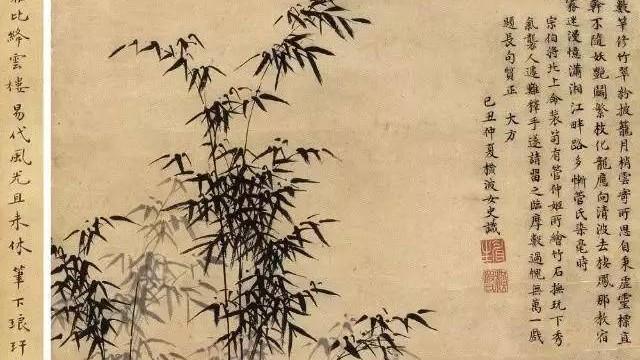 數竿修竹翠紛披籠月梢雲寄所思自秉虛靈標直
幹不隨妖艷鬬繁枝化龍應向清波去棲鳳那教宿
霧迷漫憶瀟湘江畔路多慚管氏染毫時
宗伯將北上命裝笥有管仲姬所繪竹石撫玩下秀
氣襲人遽難釋手遂請留之臨摩數過愧無萬一戲
題長句質正 大方
己丑仲夏橫波女史識
比絳雲樓易代風光且未休筆下琅玕